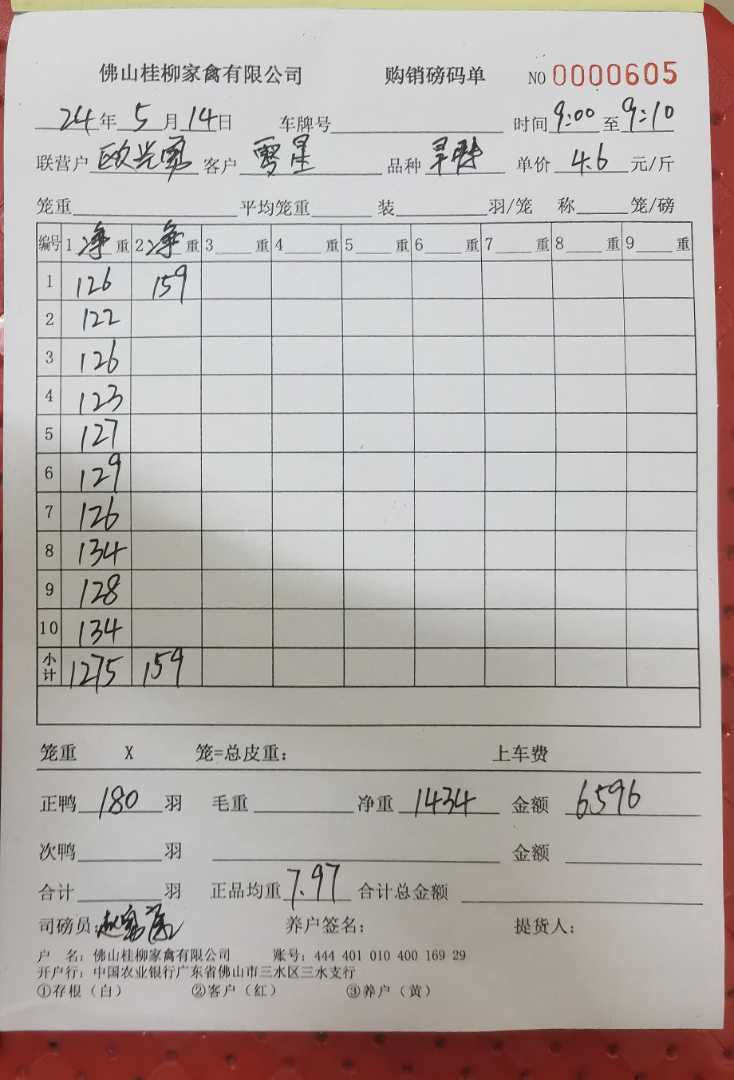 佛山桂柳家禽有限公司 购销磅码单 NO 0000605
24年5月14日 车牌号 时间9:00至9:10
联营户 客户 雪星 品种 单价 4.6 元/斤
笼重 平均笼重 装 羽/笼 称 笼/磅
编号 1 净 重 2 净 重 3 重 4 重 5 重 6 重 7 重 8 重 9 重
1 126 159
2 122
3 126
4 123
5 127
6 129
7 126
8 134
9 128
10 134
小计 1275 159
笼重 X 笼=总皮重: 上车费
正鸭 180 羽 毛重 净重 1434 金额 6596
次鸭 羽 金额
合计 羽 正品均重 7.97 合计总金额
司磅员: 养户签名: 提货人:
户 名: 佛山桂柳家禽有限公司 账号: 444 401 010 400 169 29
开户行: 中国农业银行广东省佛山市三水区三水支行
①存根（白） ②客户（红） ③养户（黄）